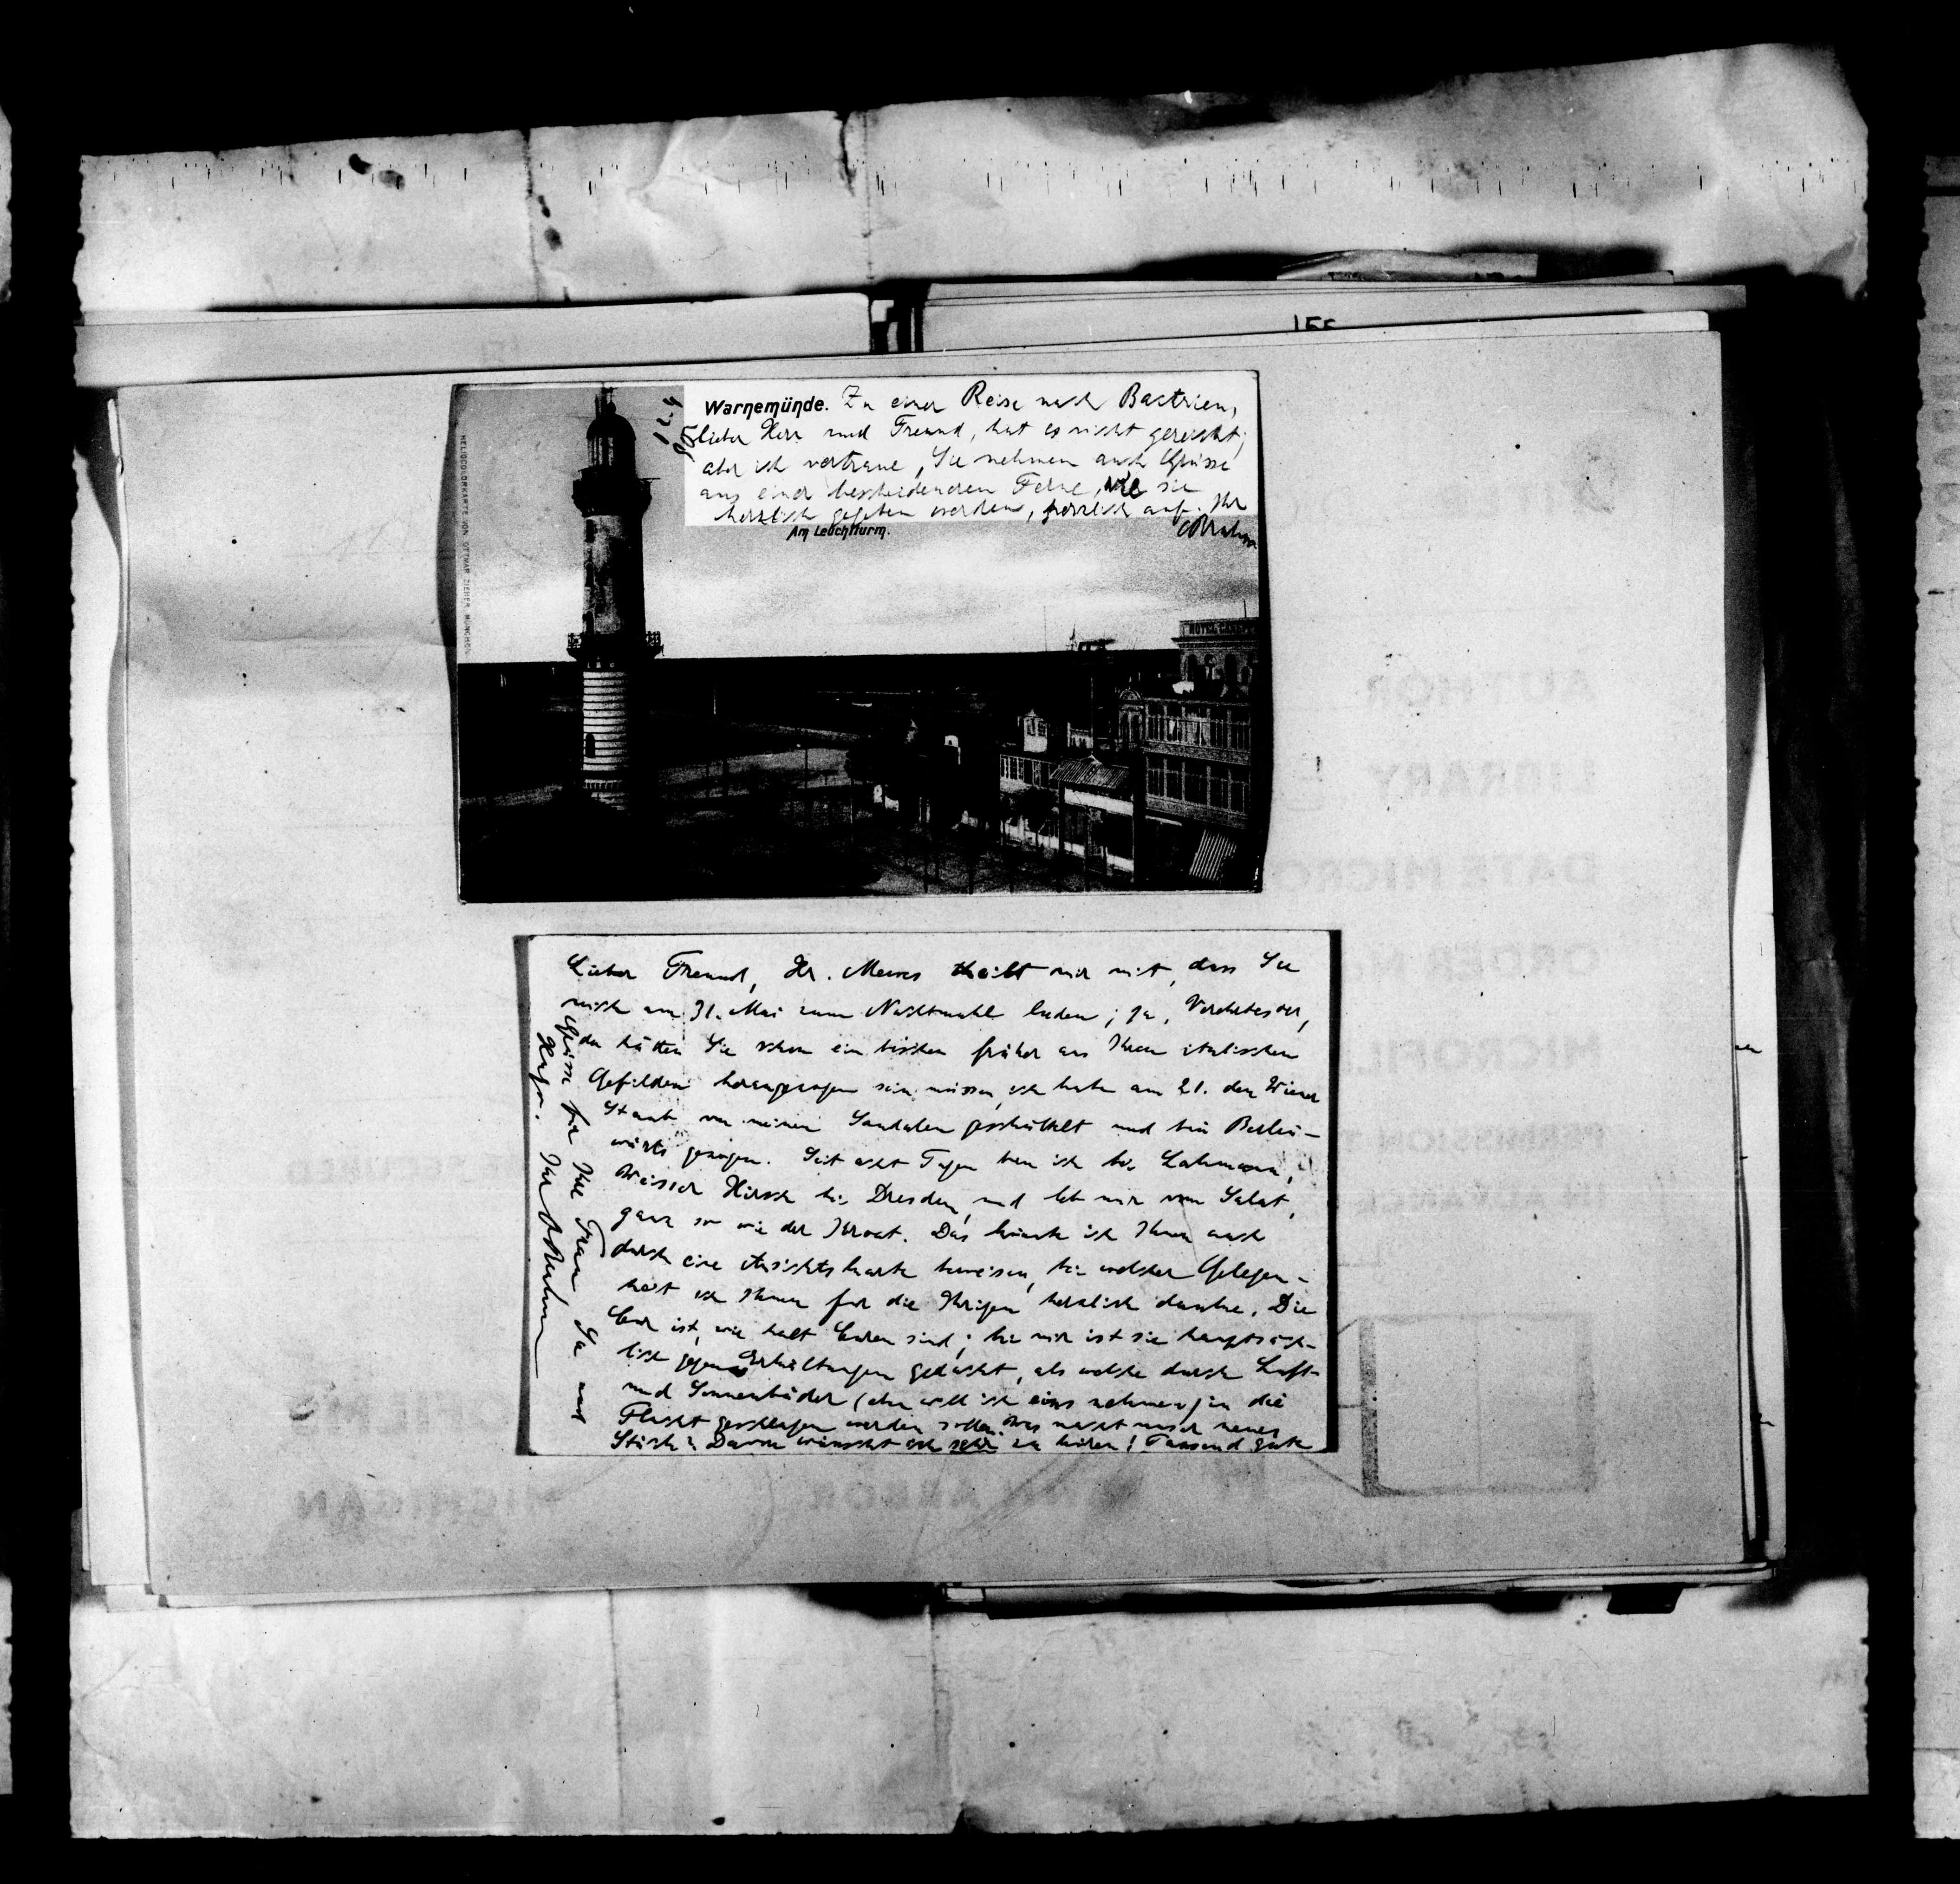 Warnemünde. Zu einer Reise nach Bactrien,
lieber Herr und Freund, hat es nicht gereicht;
aber ich vertraue, Sie nehmen auch Grüsse
aus einer bescheideneren Ferne, wie sie
herzlich gegeben werden, herzlich auf. Ihr
OBrahm
Am Leuchtturm.
HELIOCOLORKARTE VON OTTMAR ZIEHER, MÜNCHEN
HOTEL
Lieber Freund, Hr. theilt mir mit, dass Sie
mich am 31. Mai zum Nachtmahl luden; ja, Verehrtester,
da hätten Sie schon ein bisschen früher aus Ihren italischen
Gefilden herangezogen sein müssen, ich habe am 21. den Wiener
Staub von meinen Sandalen geschüttelt und bin Berlin-
wärts gezogen. Seit acht Tagen bin ich bei Lahmann,
Weisser Hirsch bei Dresden, und leb nur von Salat,
ganz so wie der Kroat. Das könnte ich Ihnen auch
durch eine Ansichtskarte beweisen, bei welcher Gelegen-
heit ich Ihnen für die Ihrigen herzlich danke. Die
Cur ist, wie halt Curen sind; bei mir ist sie hauptsäch-
lich gegen Erkältungen gedacht, als welche durch Luft-
und Sonnenbäder (eben will ich eins nehmen) in die
Flucht geschlagen werden sollen. Was macht unser neues
Stück? Davon wünscht ich sehr zu hören! Tausend gute
Grüsse für Ihre Frau Sie und
Ihr OBrahm